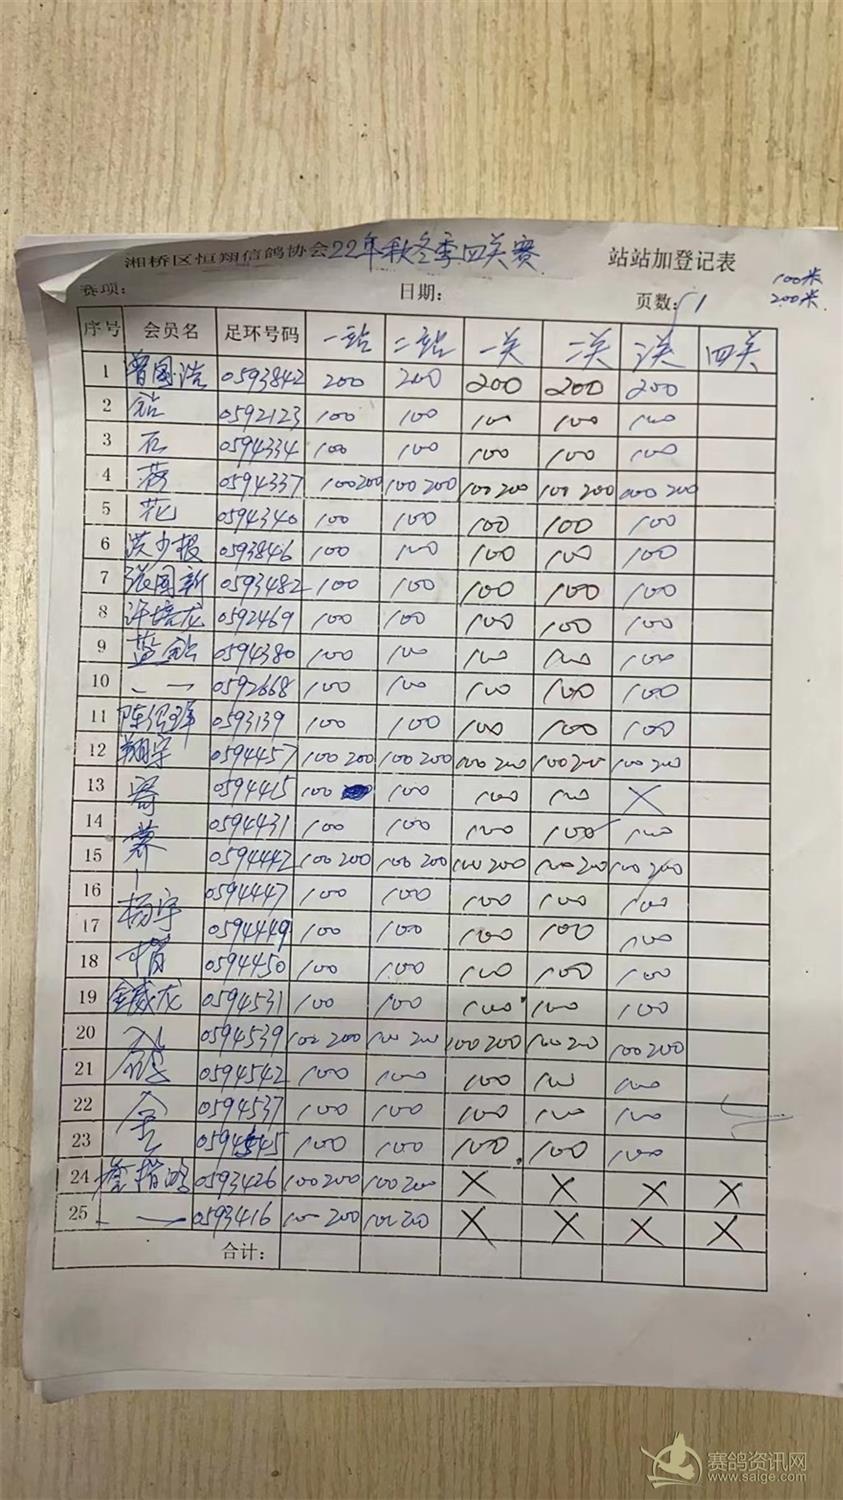 湘桥区恒翔信鸽协会22年秋冬季四关赛 站站加登记表
赛项: 日期: 页数: 1 100米
200米
序号 会员名 足环号码 一站 二站 一关 二关 三关 四关
1 曾国浩 0593842 200 200 200 200 200
2 钻 0592123 100 100 100 100 100
3 石 0594334 100 100 100 100 100
4 荷 0594337 100 200 100 200 100 200 100 200 100 200
5 花 0594340 100 100 100 100 100
6 洪少报 0593846 100 100 100 100 100
7 张国新 0593482 100 100 100 100 100
8 许培龙 0592469 100 100 100 100 100
9 蓝 0594380 100 100 100 100 100
10 0592668 100 100 100 100 100
11 陈 0593139 100 100 100 100 100
12 翔宇 0594457 100 200 100 200 100 200 100 200 100 200
13 0594415 100 100 100 100 X
14 0594431 100 100 100 100 100
15 0594442 100 200 100 200 100 200 100 200 100 200
16 杨宇 0594447 100 100 100 100 100
17 0594449 100 100 100 100 100
18 0594450 100 100 100 100 100
19 金威龙 0594531 100 100 100 100 100
20 0594539 100 200 100 200 100 200 100 200 100 200
21 0594542 100 100 100 100 100
22 0594537 100 100 100 100 100
23 0594545 100 100 100 100 100
24 0593426 100 200 100 200 X X X X
25 0593416 100 200 100 200 X X X X
合计:
赛鸽资讯网
www.saige.com